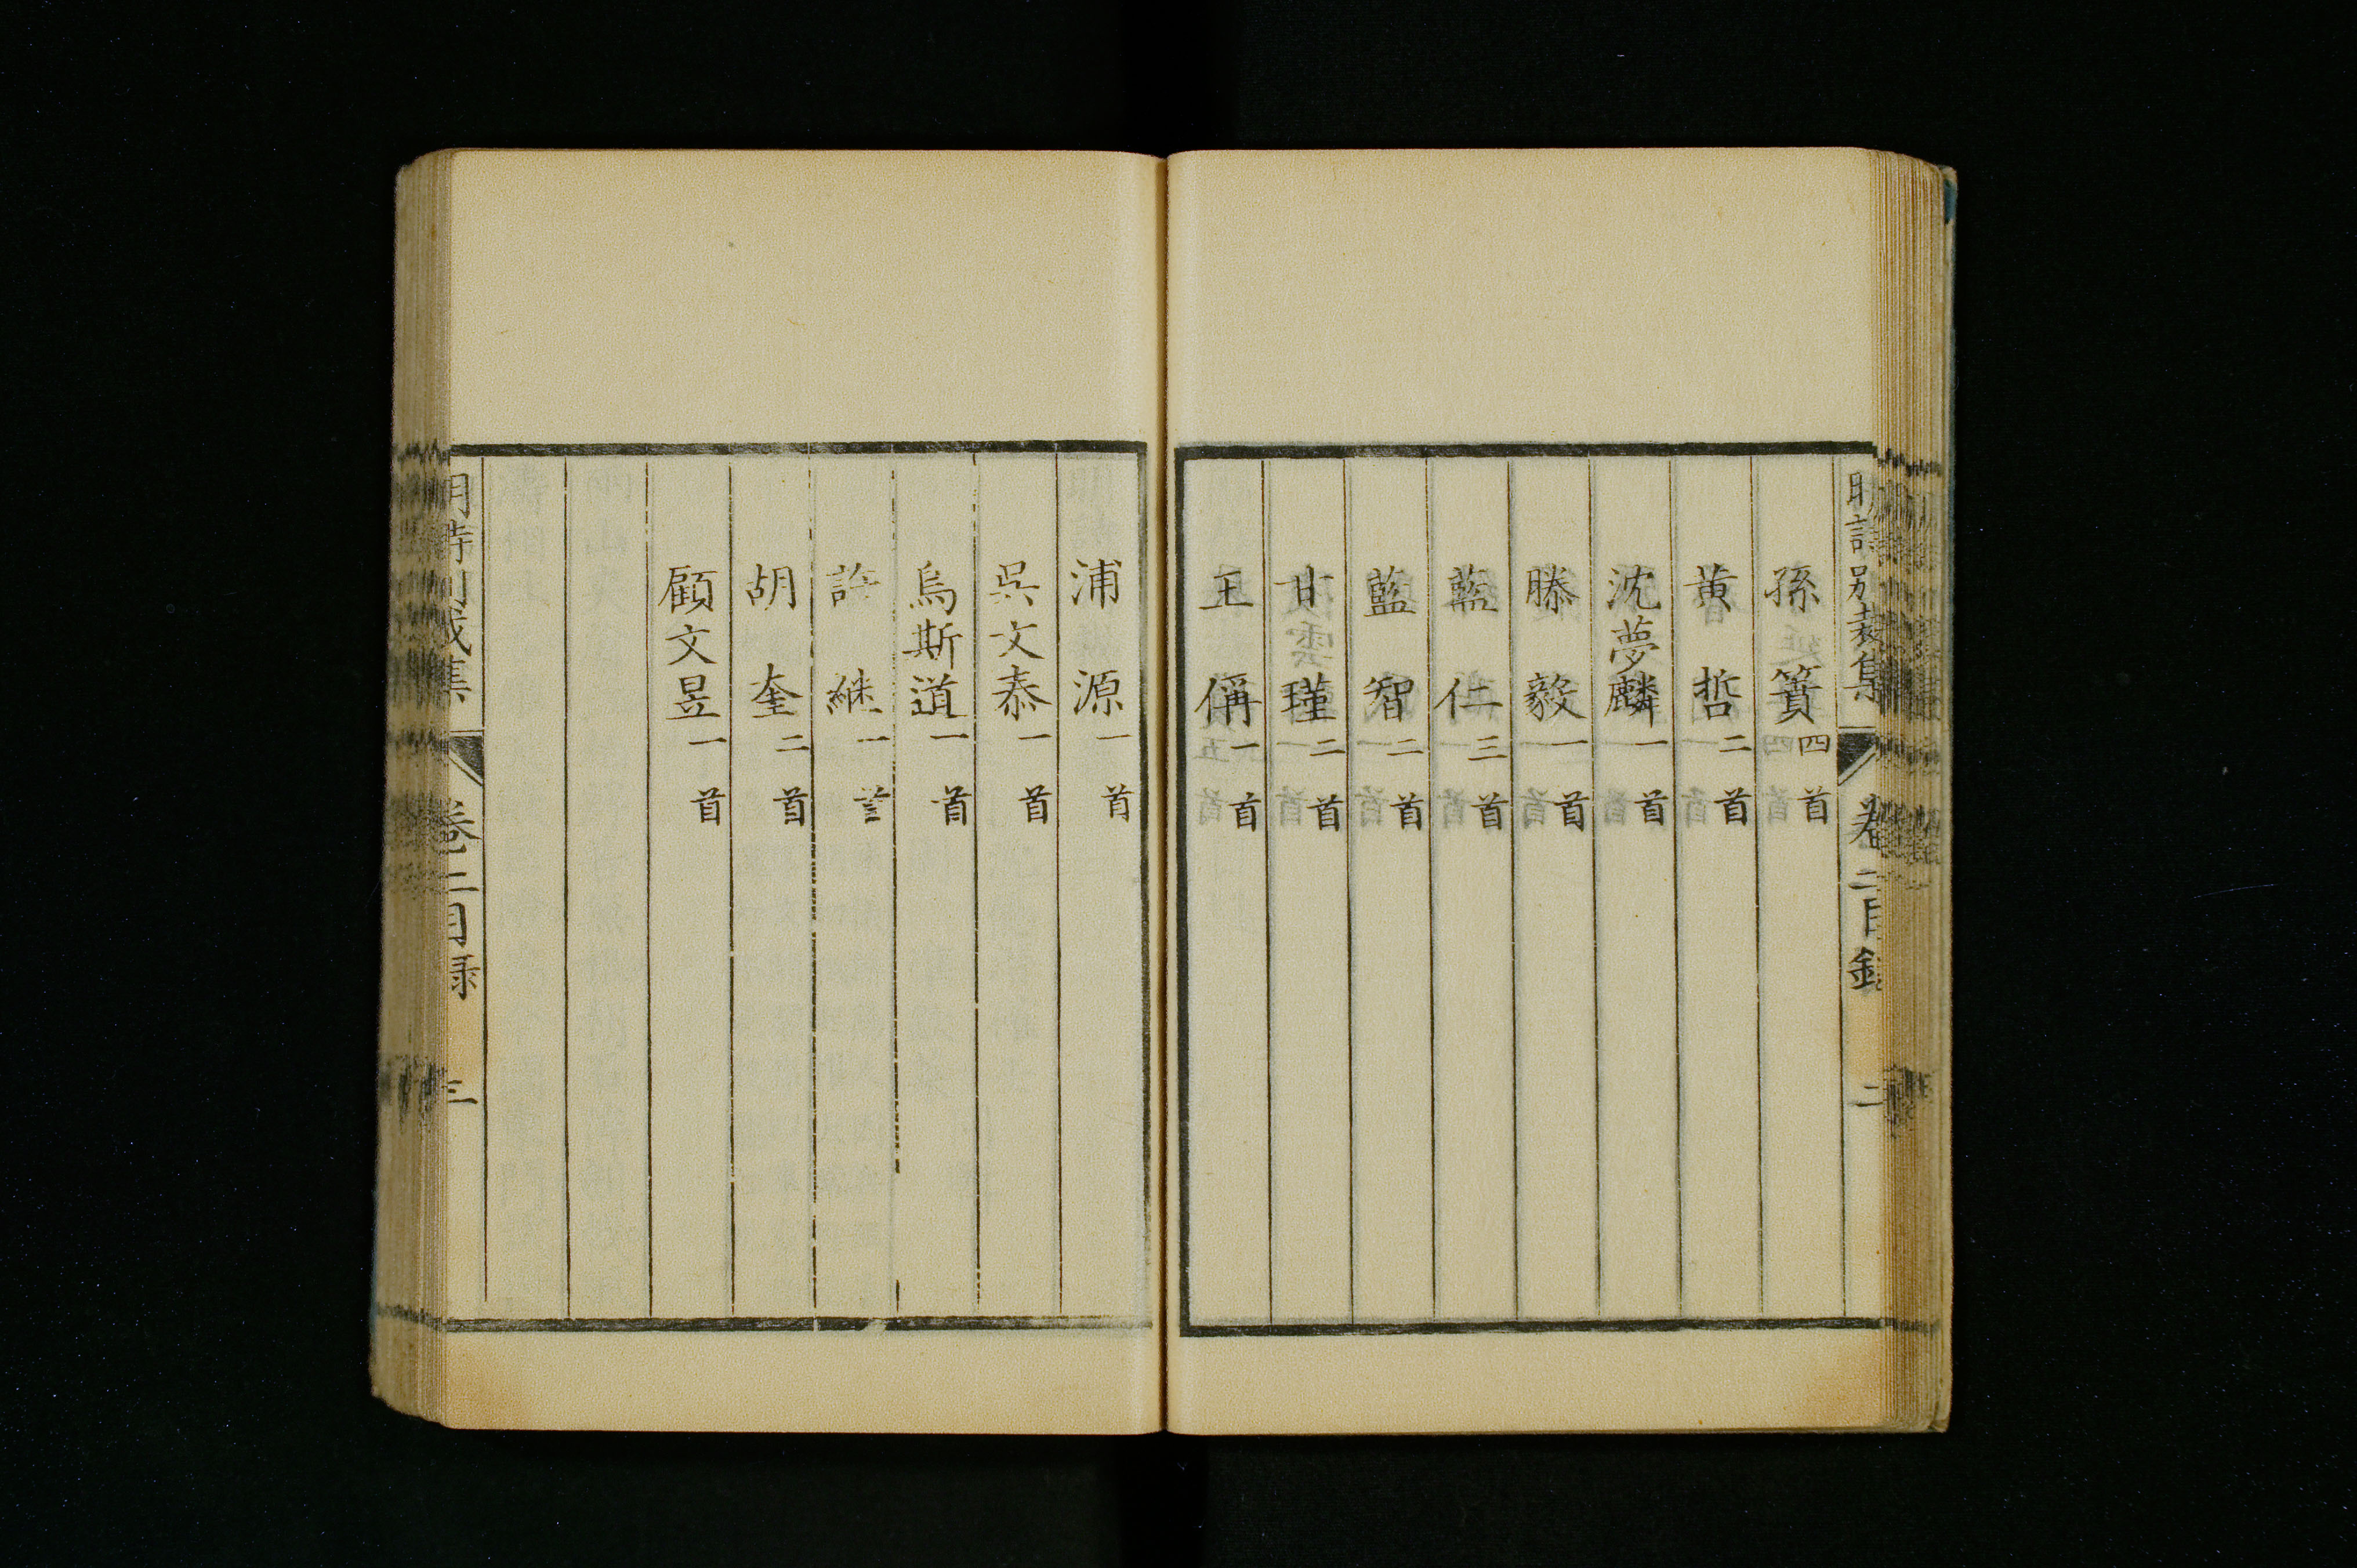 明詩別裁集 卷二目錄 二
孫蕡四首
黄哲二首
沈夢麟一首
滕毅一首
藍仁三首
藍智二首
甘瑾二首
王偁一首
浦源一首
吳文泰一首
烏斯道一首
許繼一首
胡奎二首
顧文昱一首
明詩別裁集 卷二目錄 三